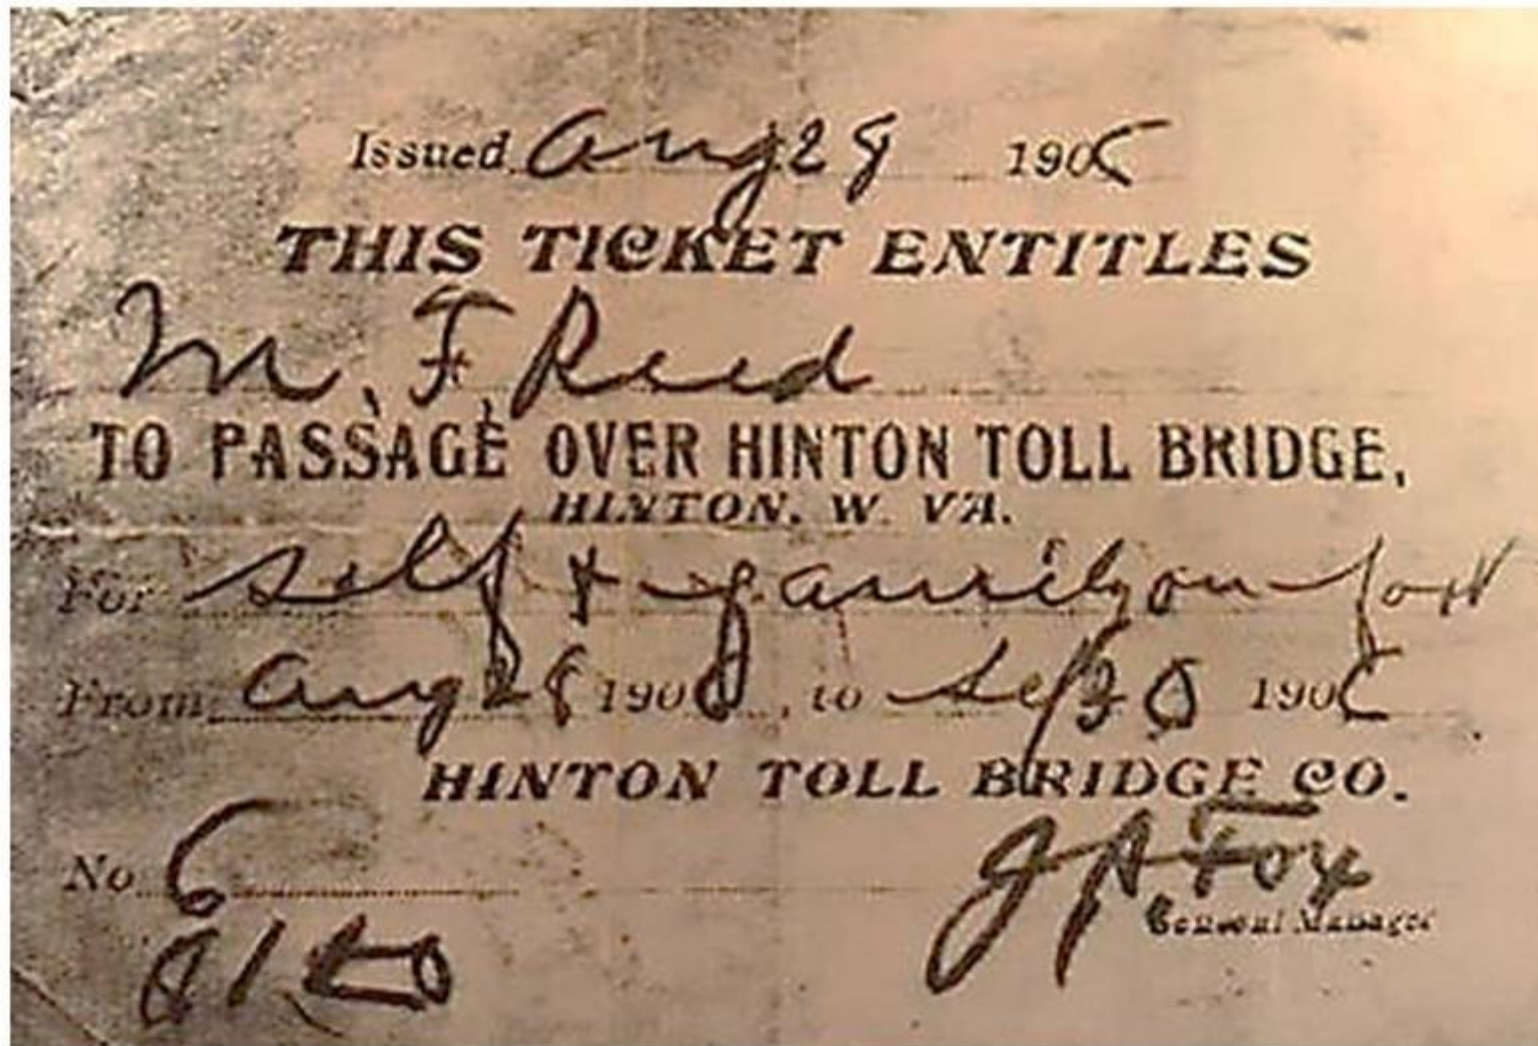 Issued Aug 28 190
THIS TICKET ENTITLES
M. F. Reed
TO PASSAGE OVER HINTON TOLL BRIDGE,
HINTON, W. VA.
For self & family on foot
From Aug 28 190 , to Sep 30 190
HINTON TOLL BRIDGE CO.
No 6
J A Fox
General Manager